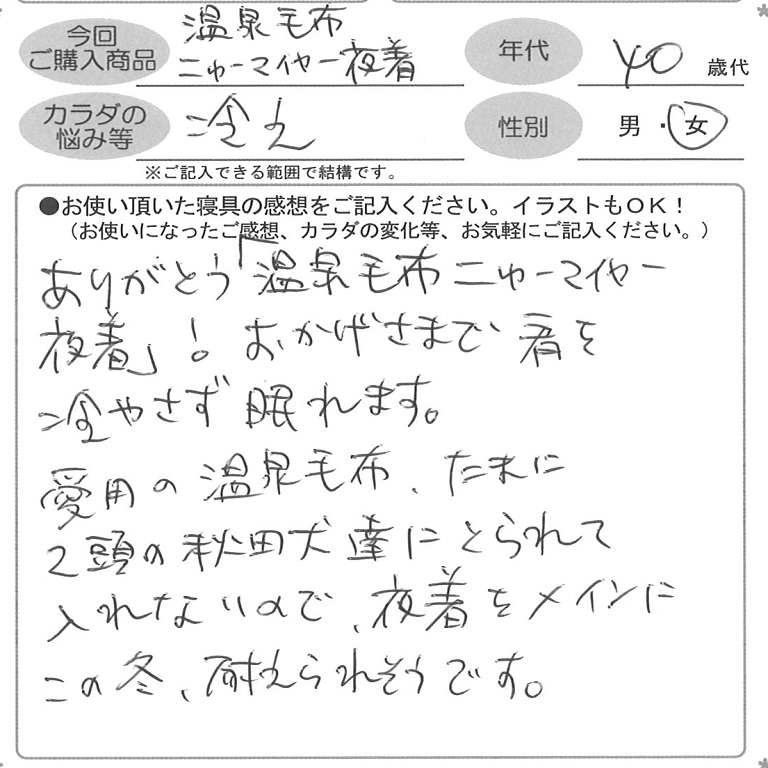 今回
ご購入商品
温泉毛布
ニューマイヤー夜着
年代
40 歳代
カラダの
悩み等
冷え
性別
男・女
※ご記入できる範囲で結構です。
●お使い頂いた寝具の感想をご記入ください。イラストもOK！
（お使いになったご感想、カラダの変化等、お気軽にご記入ください。）
ありがとう「温泉毛布ニューマイヤー
夜着」！おかげさまで肩を
冷やさず眠れます。
愛用の温泉毛布、たまに
2頭の秋田犬達にとられて
入れないので、夜着をメインに
この冬、耐えられそうです。